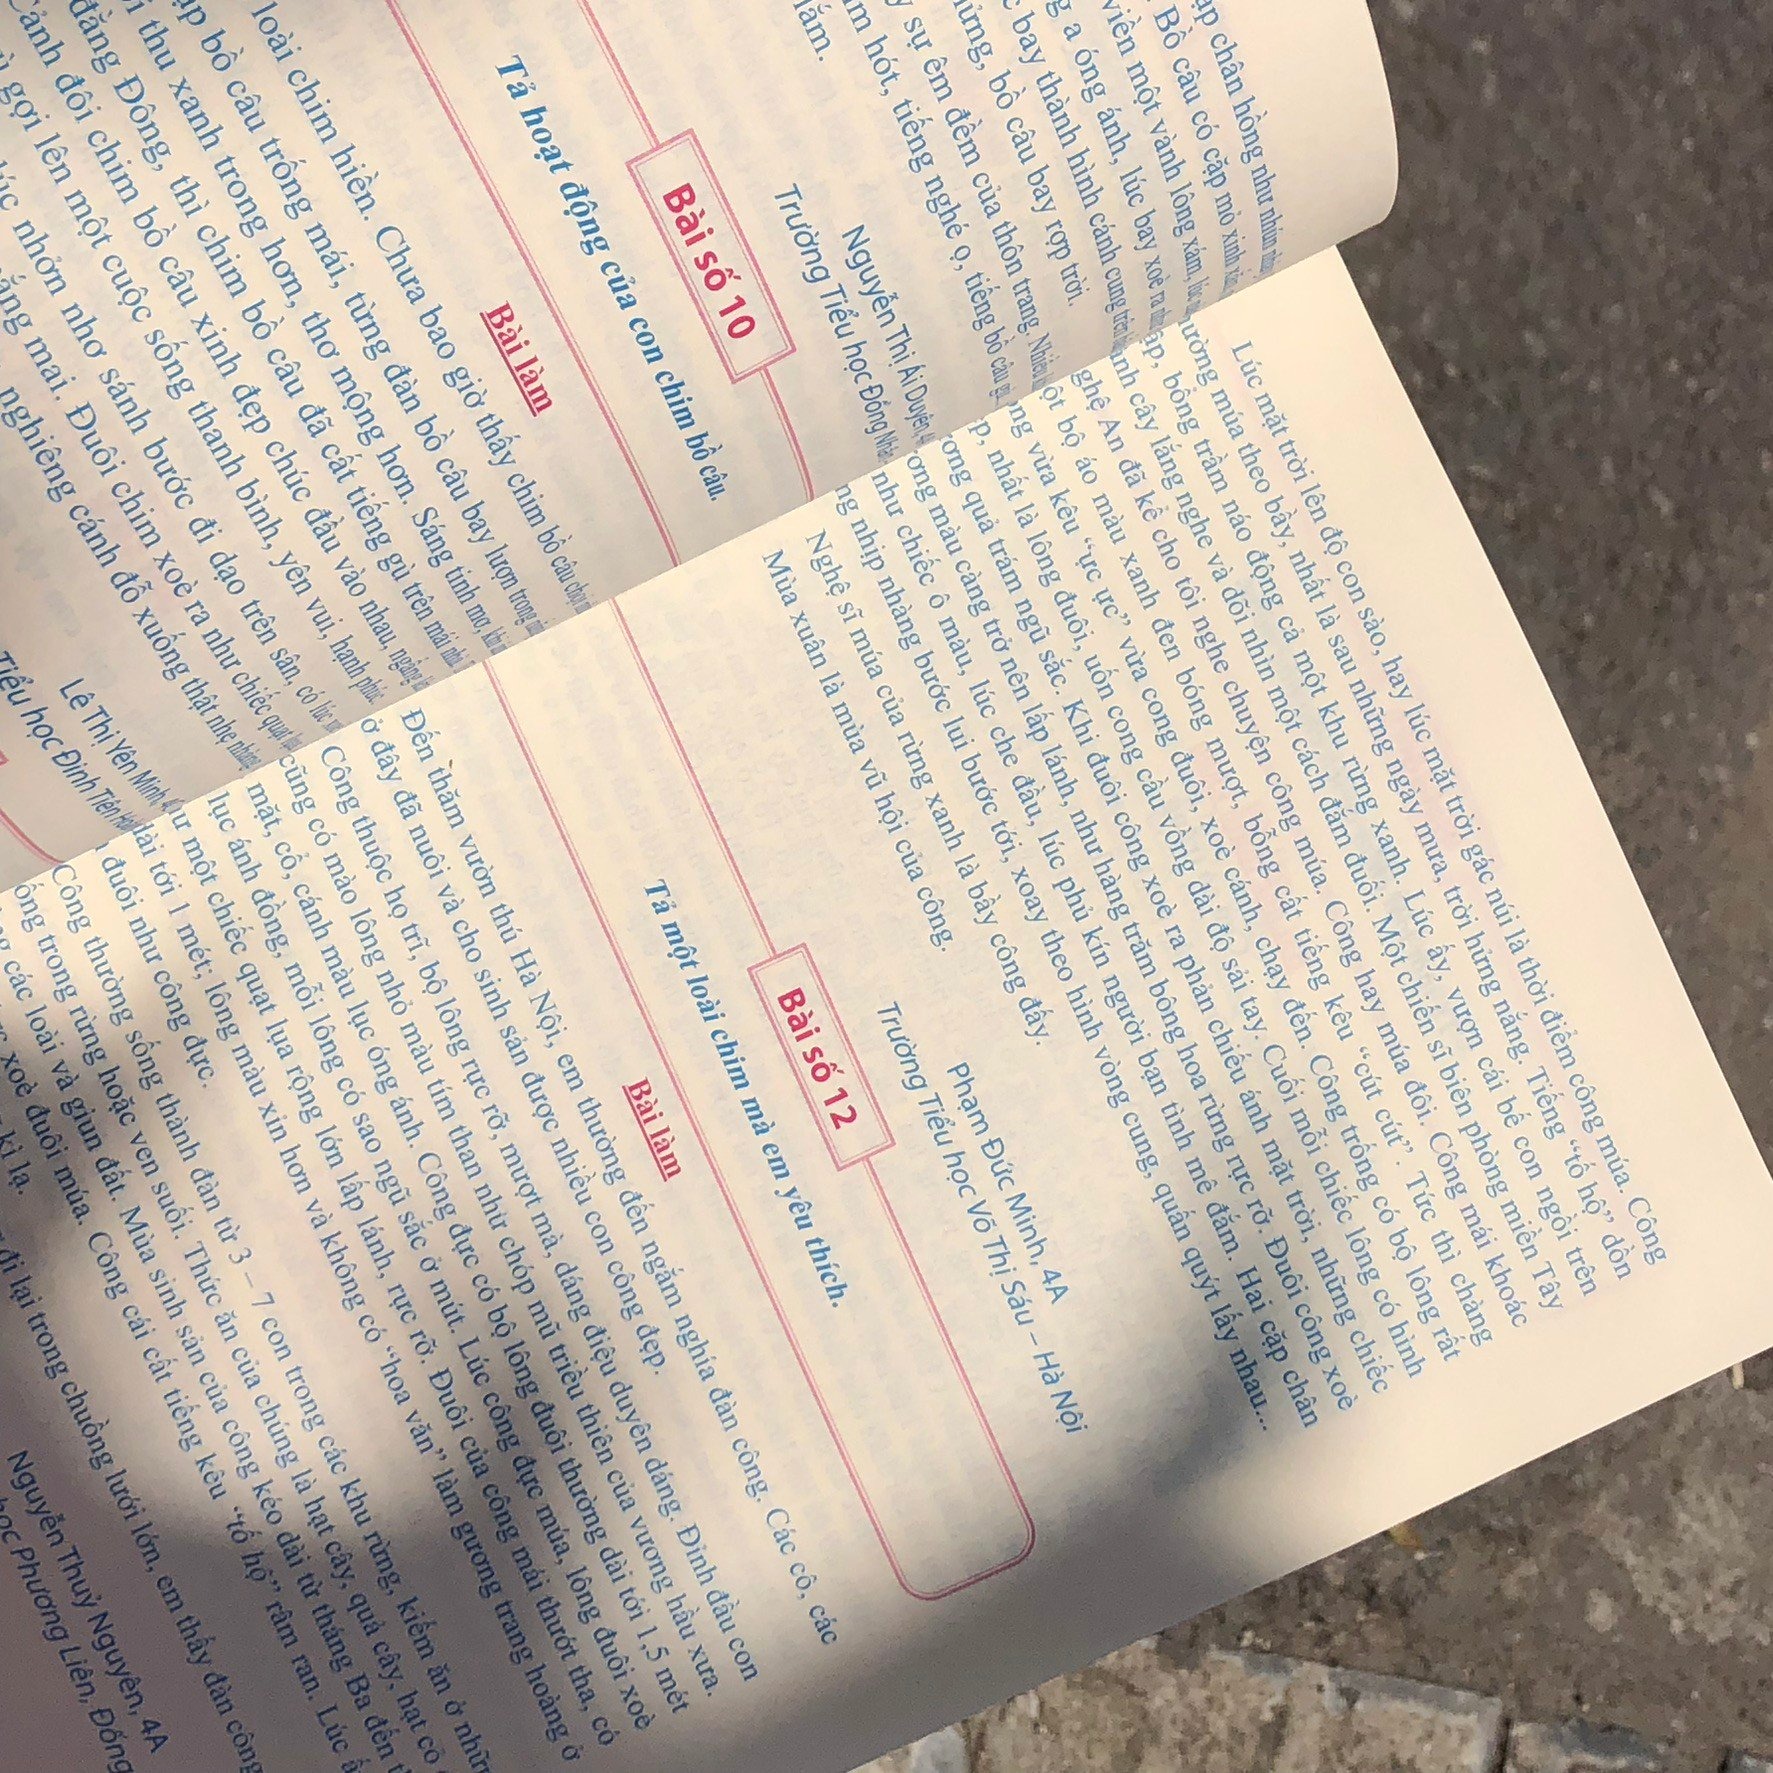 ập chân hồng như nhún
Bồ câu có cặp mỏ xinh
viền một vành lông xám,
g a óng ánh, lúc bay xoè ra
c bay thành hình cánh cung trên
hửng, bồ câu bay rợp trời.
y sự êm đềm của thôn trang.
m hót, tiếng nghé ọ, tiếng bồ câu
lắm.
Nguyễn Thị Ái Duyên,
Trường Tiểu học Đồng
Bài số 10
Tả hoạt động của con chim bồ câu.
Bài làm
loài chim hiền. Chưa bao giờ thấy chim bồ câu
ặp bồ câu trống mái, từng đàn bồ câu bay lượn trong
i thu xanh trong hơn, thơ mộng hơn. Sáng tinh mơ, khi
đằng Đông, thì chim bồ câu đã cất tiếng gù trên mái
Cảnh đôi chim bồ câu xinh đẹp chúc đầu vào nhau, ngẩng
gợi lên một cuộc sống thanh bình, yên vui, hạnh phúc.
úc nhởn nhơ sánh bước đi dạo trên sân, có lúc
ắng mai. Đuôi chim xoè ra như chiếc quạt
nghiêng cánh đỗ xuống thật nhẹ nhàng
Lê Thị Yên Minh,
Tiểu học Đinh Tiên
Lúc mặt trời lên độ con sào, hay lúc mặt trời gác núi là thời điểm công múa. Công
ường múa theo bầy, nhất là sau những ngày mưa, trời hửng nắng. Tiếng “tố hộ” dồn
ập, bỗng trầm náo động cả một khu rừng xanh. Lúc ấy, vượn cái bế con ngồi trên
nh cây lắng nghe và dõi nhìn một cách đắm đuối. Một chiến sĩ biên phòng miền Tây
ghệ An đã kể cho tôi nghe chuyện công múa. Công hay múa đôi. Công mái khoác
ột bộ áo màu xanh đen bóng mượt, bỗng cất tiếng kêu “cút cút”. Tức thì chàng
ng vừa kêu “ực ực” vừa cong đuôi, xoè cánh, chạy đến. Công trống có bộ lông rất
p, nhất là lông đuôi, uốn cong cầu vồng dài độ sải tay. Cuối mỗi chiếc lông có hình
ơng quả trám ngũ sắc. Khi đuôi công xoè ra phản chiếu ánh mặt trời, những chiếc
ơng màu càng trở nên lấp lánh, như hàng trăm bông hoa rừng rực rỡ. Đuôi công xoè
như chiếc ô màu, lúc che đầu, lúc phủ kín người bạn tình mê đắm. Hai cặp chân
ng nhịp nhàng bước lui bước tới, xoay theo hình vòng cung, quấn quýt lấy nhau...
Nghệ sĩ múa của rừng xanh là bầy công đấy.
Mùa xuân là mùa vũ hội của công.
Phạm Đức Minh, 4A
Trường Tiểu học Võ Thị Sáu – Hà Nội
Bài số 12
Tả một loài chim mà em yêu thích.
Bài làm
Đến thăm vườn thú Hà Nội, em thường đến ngắm nghía đàn công. Các cô, các
ở đây đã nuôi và cho sinh sản được nhiều con công đẹp.
Công thuộc họ trĩ, bộ lông rực rỡ, mượt mà, dáng điệu duyên dáng. Đỉnh đầu con
cũng có mào lông nhỏ màu tím than như chóp mũ triều thiên của vương hầu xưa.
mặt, cổ, cánh màu lục óng ánh. Công đực có bộ lông đuôi thường dài tới 1,5 mét
lục ánh đồng, mỗi lông có sao ngũ sắc ở mút. Lúc công đực múa, lông đuôi xoè
ư một chiếc quạt lụa rộng lớn lấp lánh, rực rỡ. Đuôi của công mái thướt tha, có
dài tới 1 mét; lông màu xỉn hơn và không có “hoa văn” làm gương trang hoàng ở
đuôi như công đực.
Công thường sống thành đàn từ 3 – 7 con trong các khu rừng, kiếm ăn ở
ống trong rừng hoặc ven suối. Thức ăn của chúng là hạt cây, quả cây, hạt cỏ
các loài và giun đất. Mùa sinh sản của công kéo dài từ tháng Ba đến
xoè đuôi múa. Công cái cất tiếng kêu “tố hộ” râm ran. Lúc
kì lạ.
đi lại trong chuồng lưới lớn, em thấy đàn công
Nguyễn Thuỷ Nguyên, 4A
học Phương Liên, Đống